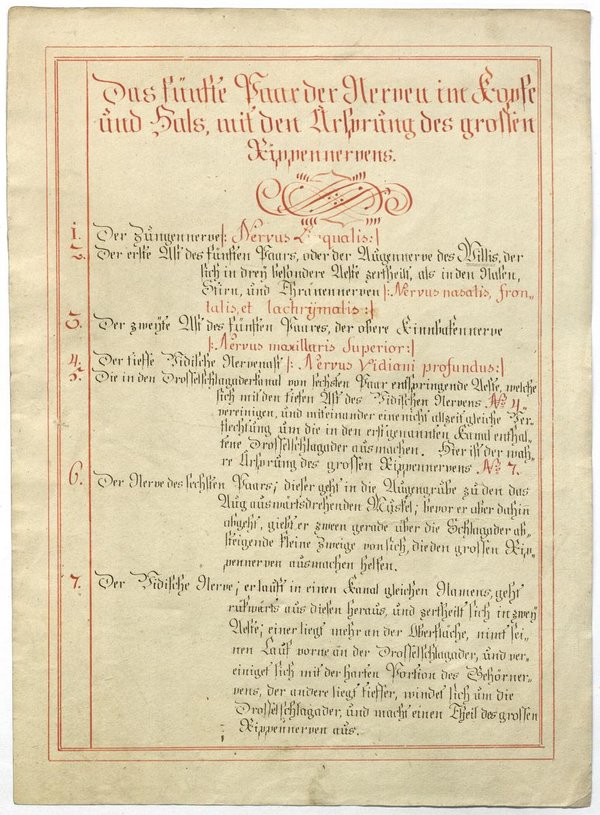 Das fünfte Paar der Nerven im Kopfe
und Hals, mit den Ursprung des grossen
Rippennervens.
1. Der Zungennerve |: Nervus :|
2. Der erste Ast des fünften Paars, oder der Augennerve des Willis, der
sich in dreÿ besondere Aeste zertheilt, als in den Nasen,
Stirn, und Thränennerven |: Nervus nasalis, fron„
talis, et lachrÿmalis :|
3. Der zweÿte Ast des fünften Paares, der obere Kinnbakennerve
|: Nervus maxillaris Superior :|
4. Der tieffe Vidische Nervenast |: Nervus Vidiani profundus :|
5. Die in den Drosselschlagaderkanal von sechsten Paar entspringende Aeste, welche
sich mit den tiefen Ast des Vidischen Nervens No 4
vereinigen, und miteinander eine nicht allzeit gleiche Ver„
flechtung um die in den erstgenannten Kanal enthal„
tene Drosselschlagader ausmachen. Hier ist der wah„
re Ursprung des grossen Rippennervens No 7.
6. Der Nerve des sechsten Paars; dieser geht in die Augengrube zu den das
Aug auswärtsdrehenden Muskel; bevor er aber dahin
abgeht, giebt er zween gerade über die Schlagader ab„
steigende kleine Zweige von sich, die den grossen Rip„
pennerven ausmachen helfen.
7. Der Vidische Nerve; er lauft in einen Kanal gleichen Namens, geht
rukwärts aus diesen heraus, und zertheilt sich in zweÿ
Aeste; einer liegt mehr an der Oberfläche, nimt sei„
nen Lauf vorne an der Drosselschlagader, und ver„
einiget sich mit der harten Portion des Gehörner„
vens, der andere liegt tieffer, windet sich um die
Drosselschlagader, und macht einen Theil des grossen
Rippennerven aus.